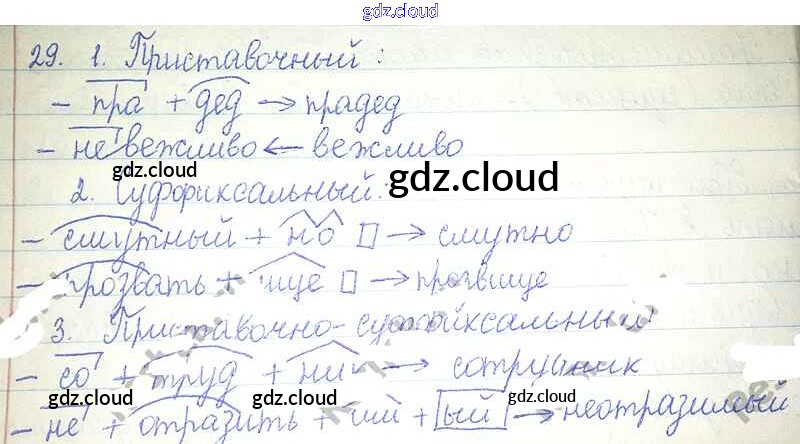 gdz.cloud
29. 1. Приставочный:
- пра + дед → прадед
- невежливо ← вежливо
gdz.cloud
gdz.cloud
2. Суффориксальный:
- смутный + но □ → смутно
- прозвать + ище □ → прозвище
3. Приставочно-суффиксальный
- со + труд + ник → сотрудник
gdz.cloud gdz.cloud gdz.cloud
- не + отразить + им + ый → неотразимый